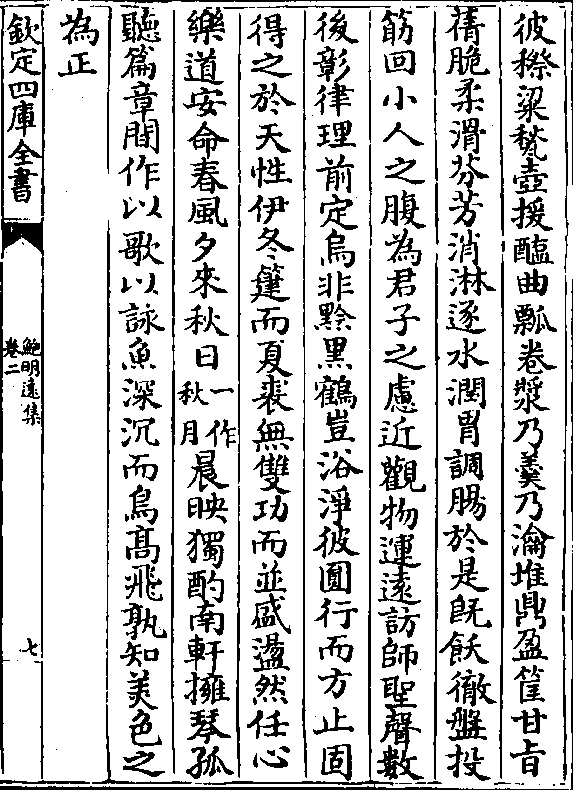 彼穄粱甃壺援醢曲瓢卷漿乃羹乃瀹堆鼎盈筐甘旨
蒨脆柔滑芬芳消淋逐水潤胃調腸於是既飫徹盤投
筯回小人之腹為君子之慮近觀物運遠訪師聖聲數
後彰律理前定烏非黔黒鶴豈浴淨彼圓行而方止固
得之於天性伊冬箑而夏裘無雙功而並盛盪然任心
樂道安命春風夕來秋日一作秋月晨映獨酌南軒擁琴孤
聽篇章間作以歌以詠魚深沉而鳥髙飛孰知美色之
為正
欽定四庫全書
鮑明逺集
卷二
七